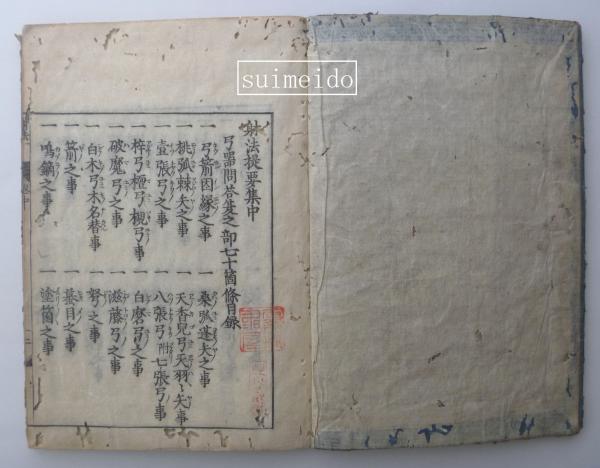 suimeido
射法提要集中
弓器問答集之部七十箇條目録
一 弓箭因縁之事
一 桑弧蓬矢之事
一 桃弧棘矢之事
一 天香兒弓天羽々矢事
一 壹張弓之事
一 八張弓附七張弓事
一 梓弓檀弓槻弓事
一 白磨弓之事
一 破魔弓之事
一 滋藤弓之事
一 白木弓木名替事
一 弩之事
一 箭之事
一 蟇目之事
一 鳴鏑之事
一 塗箇之事